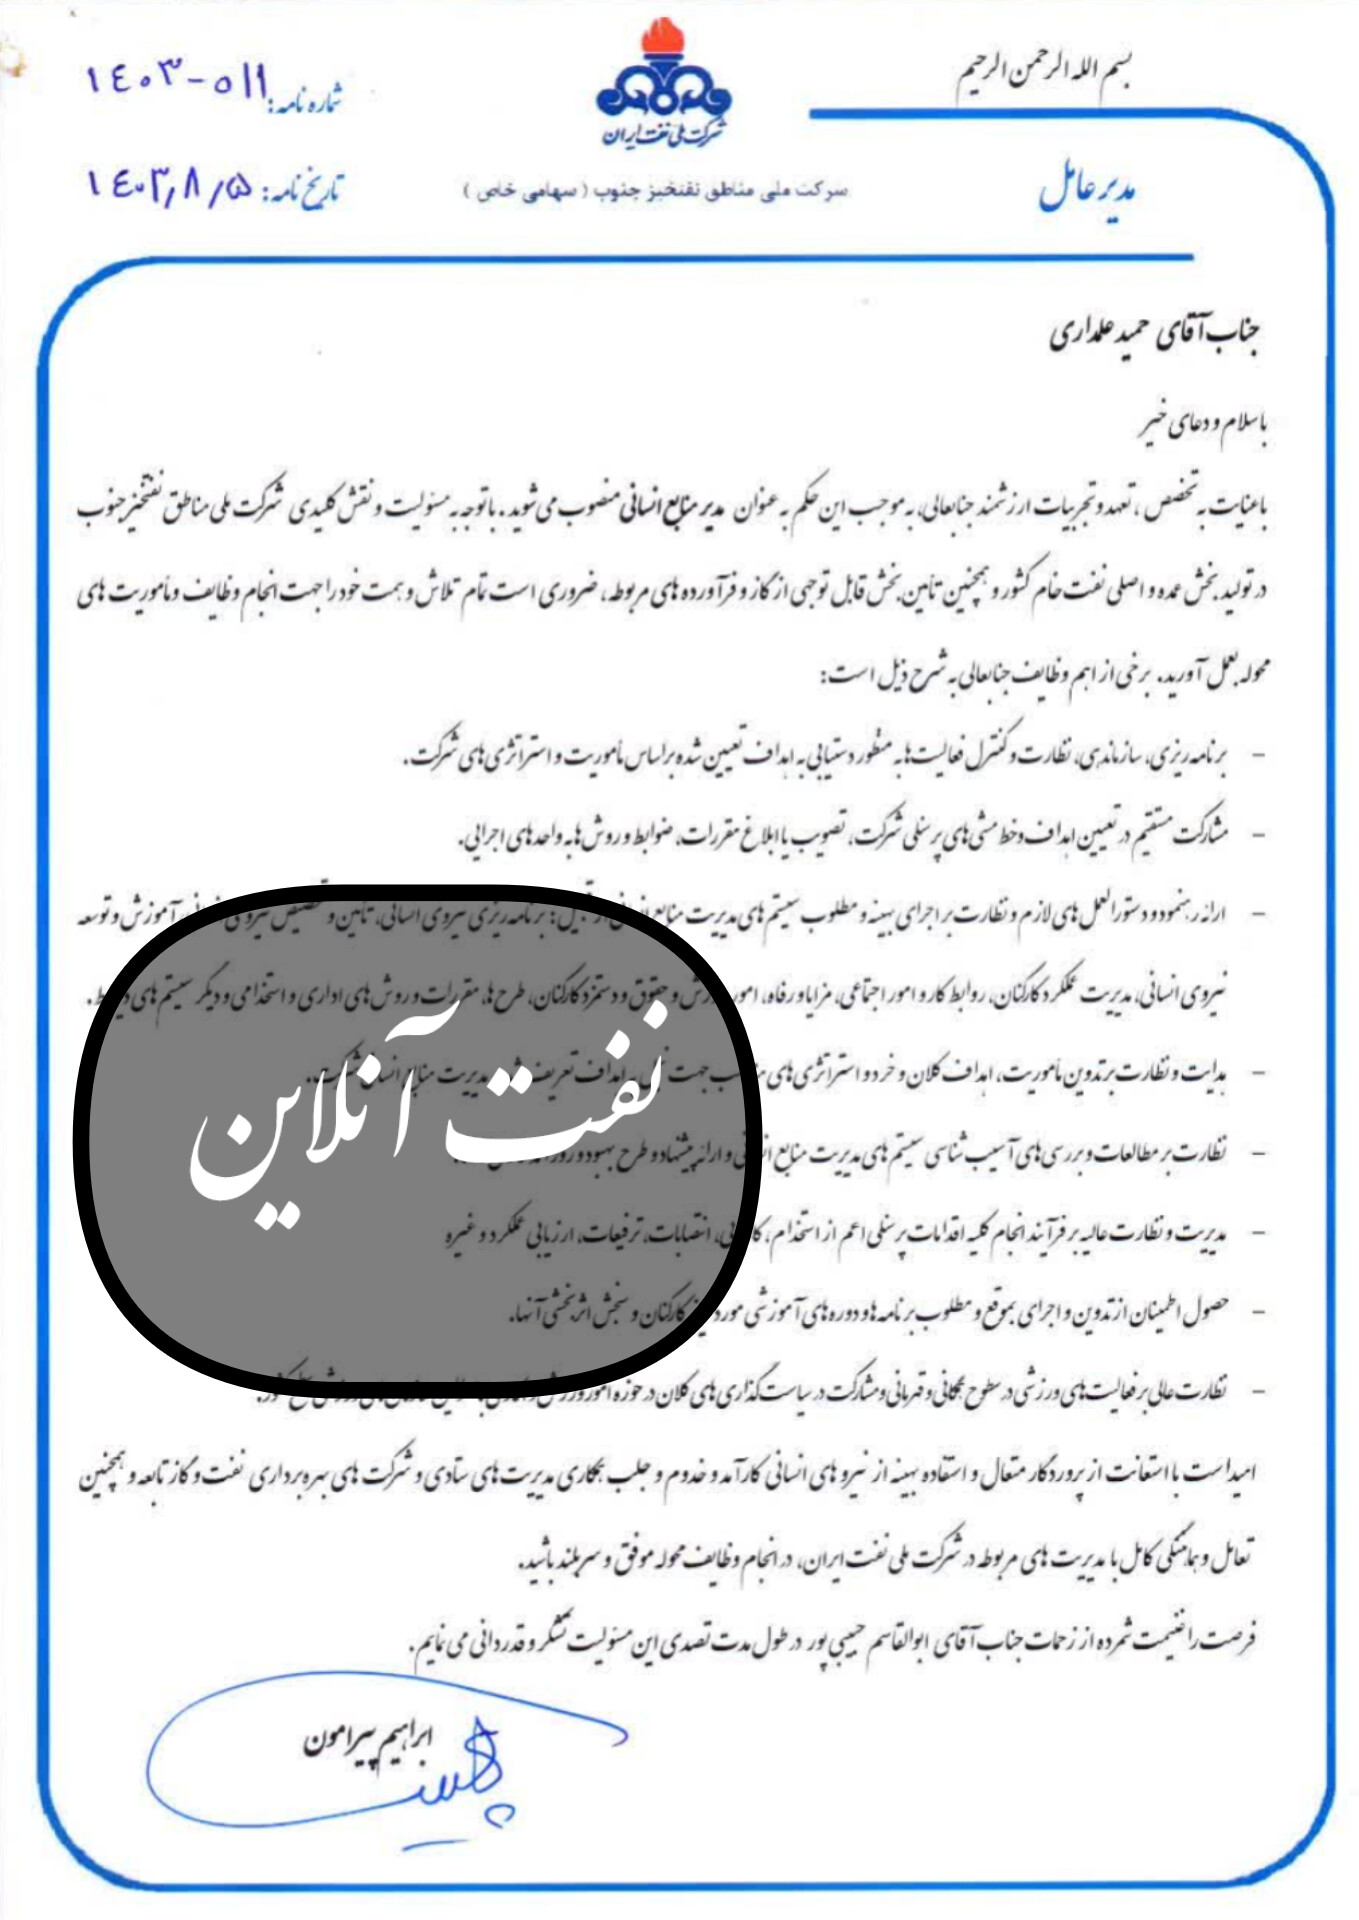 بسم الله الرحمن الرحیم
شماره نامه: ۱۴۰۳-۵۱۱
شرکت ملی نفت ایران
مدیر عامل
شرکت ملی مناطق نفتخیز جنوب (سهامی خاص)
تاریخ نامه: ۱۴۰۳/۸/۵
جناب آقای حمید علمداری
با سلام و دعای خیر
با عنایت به تخصص، تعهد و تجربیات ارزشمند جنابعالی، به موجب این حکم به عنوان مدیر منابع انسانی منصوب می شوید. با توجه به مسئولیت و نقش کلیدی شرکت ملی مناطق نفتخیز جنوب
در تولید بخش عمده و اصلی نفت خام کشور و همچنین تأمین بخش قابل توجهی از گاز و فرآورده های مربوطه، ضروری است تمام تلاش و همت خود را جهت انجام وظایف و مأموریت های
محوله بعمل آورید. برخی از اهم وظایف جنابعالی به شرح ذیل است:
- برنامه ریزی، سازماندهی، نظارت و کنترل فعالیت ها به منظور دستیابی به اهداف تعیین شده براساس مأموریت و استراتژی های شرکت.
- مشارکت مستقیم در تعیین اهداف و خط مشی های پرسنلی شرکت، تصویب یا ابلاغ مقررات، ضوابط و روش ها به واحدهای اجرایی.
- ارائه رهنمود و دستورالعمل های لازم و نظارت بر اجرای بهینه و مطلوب سیستم های مدیریت منابع انسانی از قبیل: برنامه ریزی نیروی انسانی، تأمین و تخصیص نیروی انسانی، آموزش و توسعه
نیروی انسانی، مدیریت عملکرد کارکنان، روابط کار و امور اجتماعی، مزایا و رفاه، امور ورزش و حقوق و دستمزد کارکنان، طرح ها، مقررات و روش های اداری و استخدامی و دیگر سیستم های
- هدایت و نظارت بر تدوین مأموریت، اهداف کلان و خرد و استراتژی های مناسب جهت نیل به اهداف تعریف شده مدیریت منابع انسانی شرکت.
- نظارت بر مطالعات و بررسی های آسیب شناسی سیستم های مدیریت منابع انسانی و ارائه پیشنهاد و طرح بهبود و
- مدیریت و نظارت عالیه بر فرآیند انجام کلیه اقدامات پرسنلی اعم از استخدام، انتصابات، ترفیعات، ارزیابی عملکرد و غیره
- حصول اطمینان از تدوین و اجرای بموقع و مطلوب برنامه ها و دوره های آموزشی مورد نیاز کارکنان و سنجش اثربخشی آنها.
- نظارت عالی بر فعالیت های ورزشی در سطوح همگانی و قهرمانی و مشارکت در سیاست گذاری های کلان در حوزه امور ورزش
امید است با استعانت از پروردگار متعال و استفاده بهینه از نیرو های انسانی کارآمد و خدوم و جلب همکاری مدیریت های ستادی و شرکت های بهره برداری نفت و گاز تابعه و همچنین
تعامل و هماهنگی کامل با مدیریت های مربوطه در شرکت ملی نفت ایران، در انجام وظایف محوله موفق و سربلند باشید.
فرصت را غنیمت شمرده از زحمات جناب آقای ابوالقاسم حبیبی پور در طول مدت تصدی این مسئولیت تشکر و قدردانی می نمایم.
ابراهیم پیرامون
نفت آنلاین